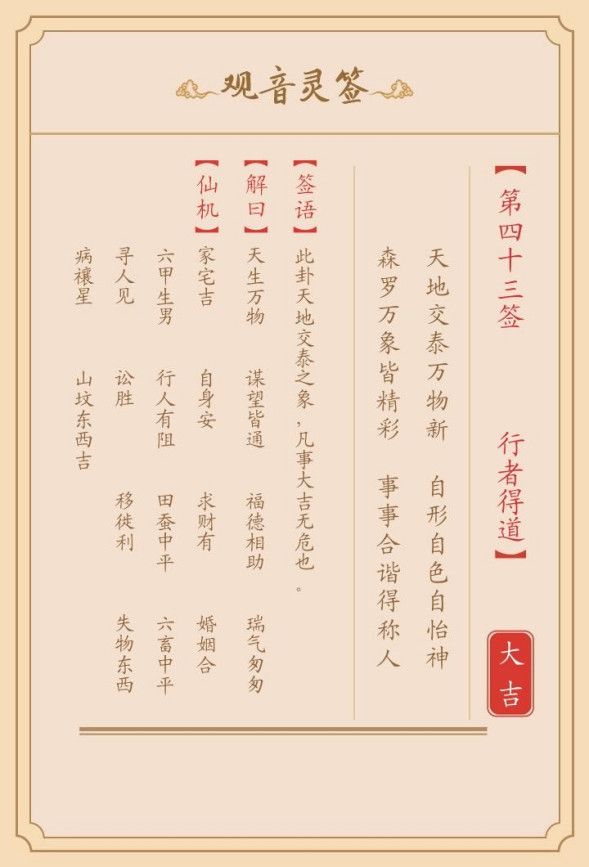 观音灵签
【第四十三签 行者得道】
大吉
天地交泰万物新 自形自色自怡神
森罗万象皆精彩 事事合谐得称人
【签语】此卦天地交泰之象,凡事大吉无危也。
【解曰】天生万物 谋望皆通 福德相助 瑞气匆匆
【仙机】家宅吉 自身安 求财有 婚姻合
六甲生男 行人有阻 田蚕中平 六畜中平
寻人见 讼胜 移徙利 失物东西
病禳星 山坟东西吉